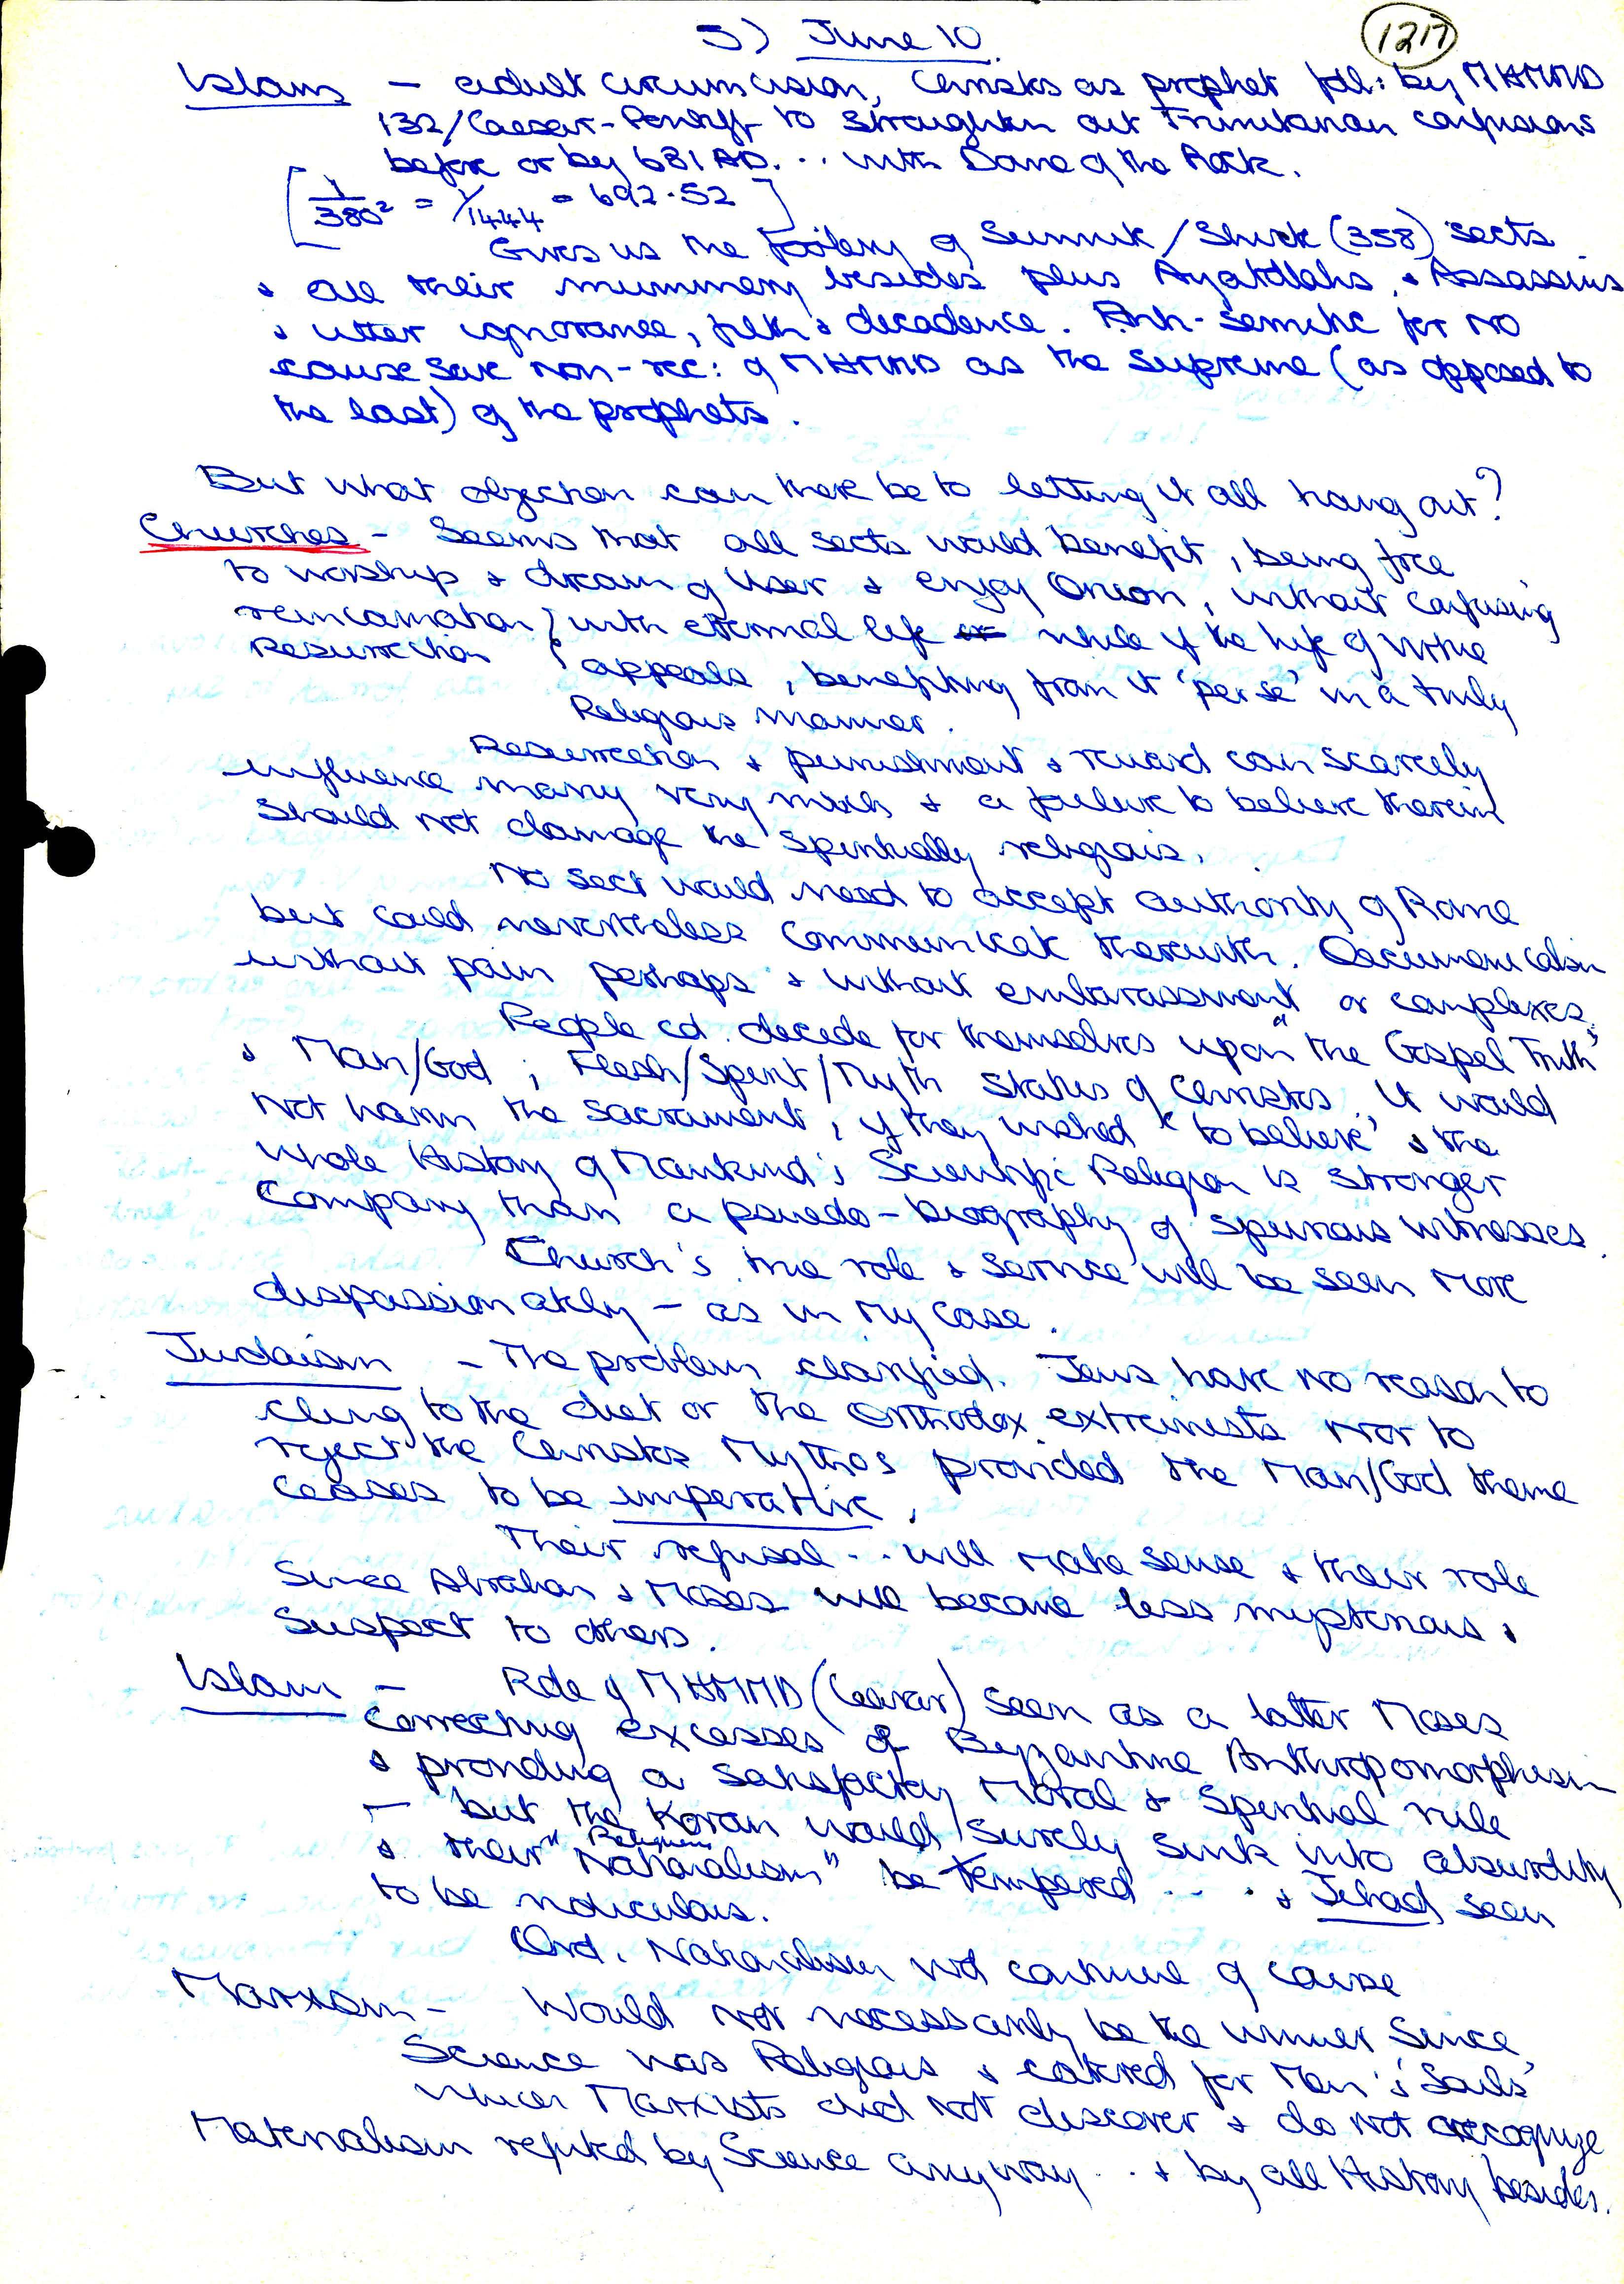 5) June 10.
1217
Islam — adult circumcision, Christos as prophet fol: by MHMMD
132/Caesar-Pontiff to straighten out Trinitarian confusions
before or by 681 AD. .. with Dome of the Rock.
[1/380² = 1/1444 = 692.52]
Gives us the foolery of Sunnite/Shiite (358) sects
& all their mummery besides plus Ayatollahs, & Assassins
& utter ignorance, filth & decadence. Anti-semitic for NO
cause save non-rec: of MHMMD as the supreme (as opposed to
the last) of the prophets.
But what objection can there be to letting it all hang out?
Churches - Seems that all sects would benefit, being free
to worship & dream of User & enjoy Orion, without confusing
reincarnation } with eternal life while if the life of Virtue
Resurrection } appeals, benefiting from it 'per se' in a truly
Religious manner.
Resurrection & punishment & reward can scarcely
influence many very much & a failure to believe therein
should not damage the spiritually religious.
No sect would need to accept authority of Rome
but could nevertheless communicate therewith.
without pain perhaps & without embarassment or complexes.
People cd. decide for themselves upon "the Gospel Truth"
& Man/God ; Flesh/Spirit/Myth status of Christos. It would
not harm the sacrament, if they wished 'to believe' & the
whole History of Mankind's Scientific Religion is stronger
company than a psuedo-biography of spurious witnesses.
Church's true role & service will be seen more
dispassionately — as in my case.
Judaism — The problem clarified. Jews have no reason to
cling to the diet or the Orthodox extremists nor to
reject the Christos Mythos provided the Man/God theme
ceases to be imperative.
Their refusal .. will make sense & their role
since Abraham & Moses will become less mysterious &
suspect to others.
Islam — Role of MHMMD (Caesar) seen as a latter Moses
correcting excesses of Byzantine Anthropomorphism
& providing a satisfactory Moral & Spiritual rule
— but the Koran would surely sink into absurdity
& their "Religious Nationalism" be tempered .. . & Jehad seen
to be ridiculous.
Ord. Nationalism wd continue of course
Marxism — Would not necessarily be the winner since
Science was Religious & catered for Men's 'Souls'
which Marxists did not discover & do not recognize
Materialism refuted by Science anyway .. & by all History besides.